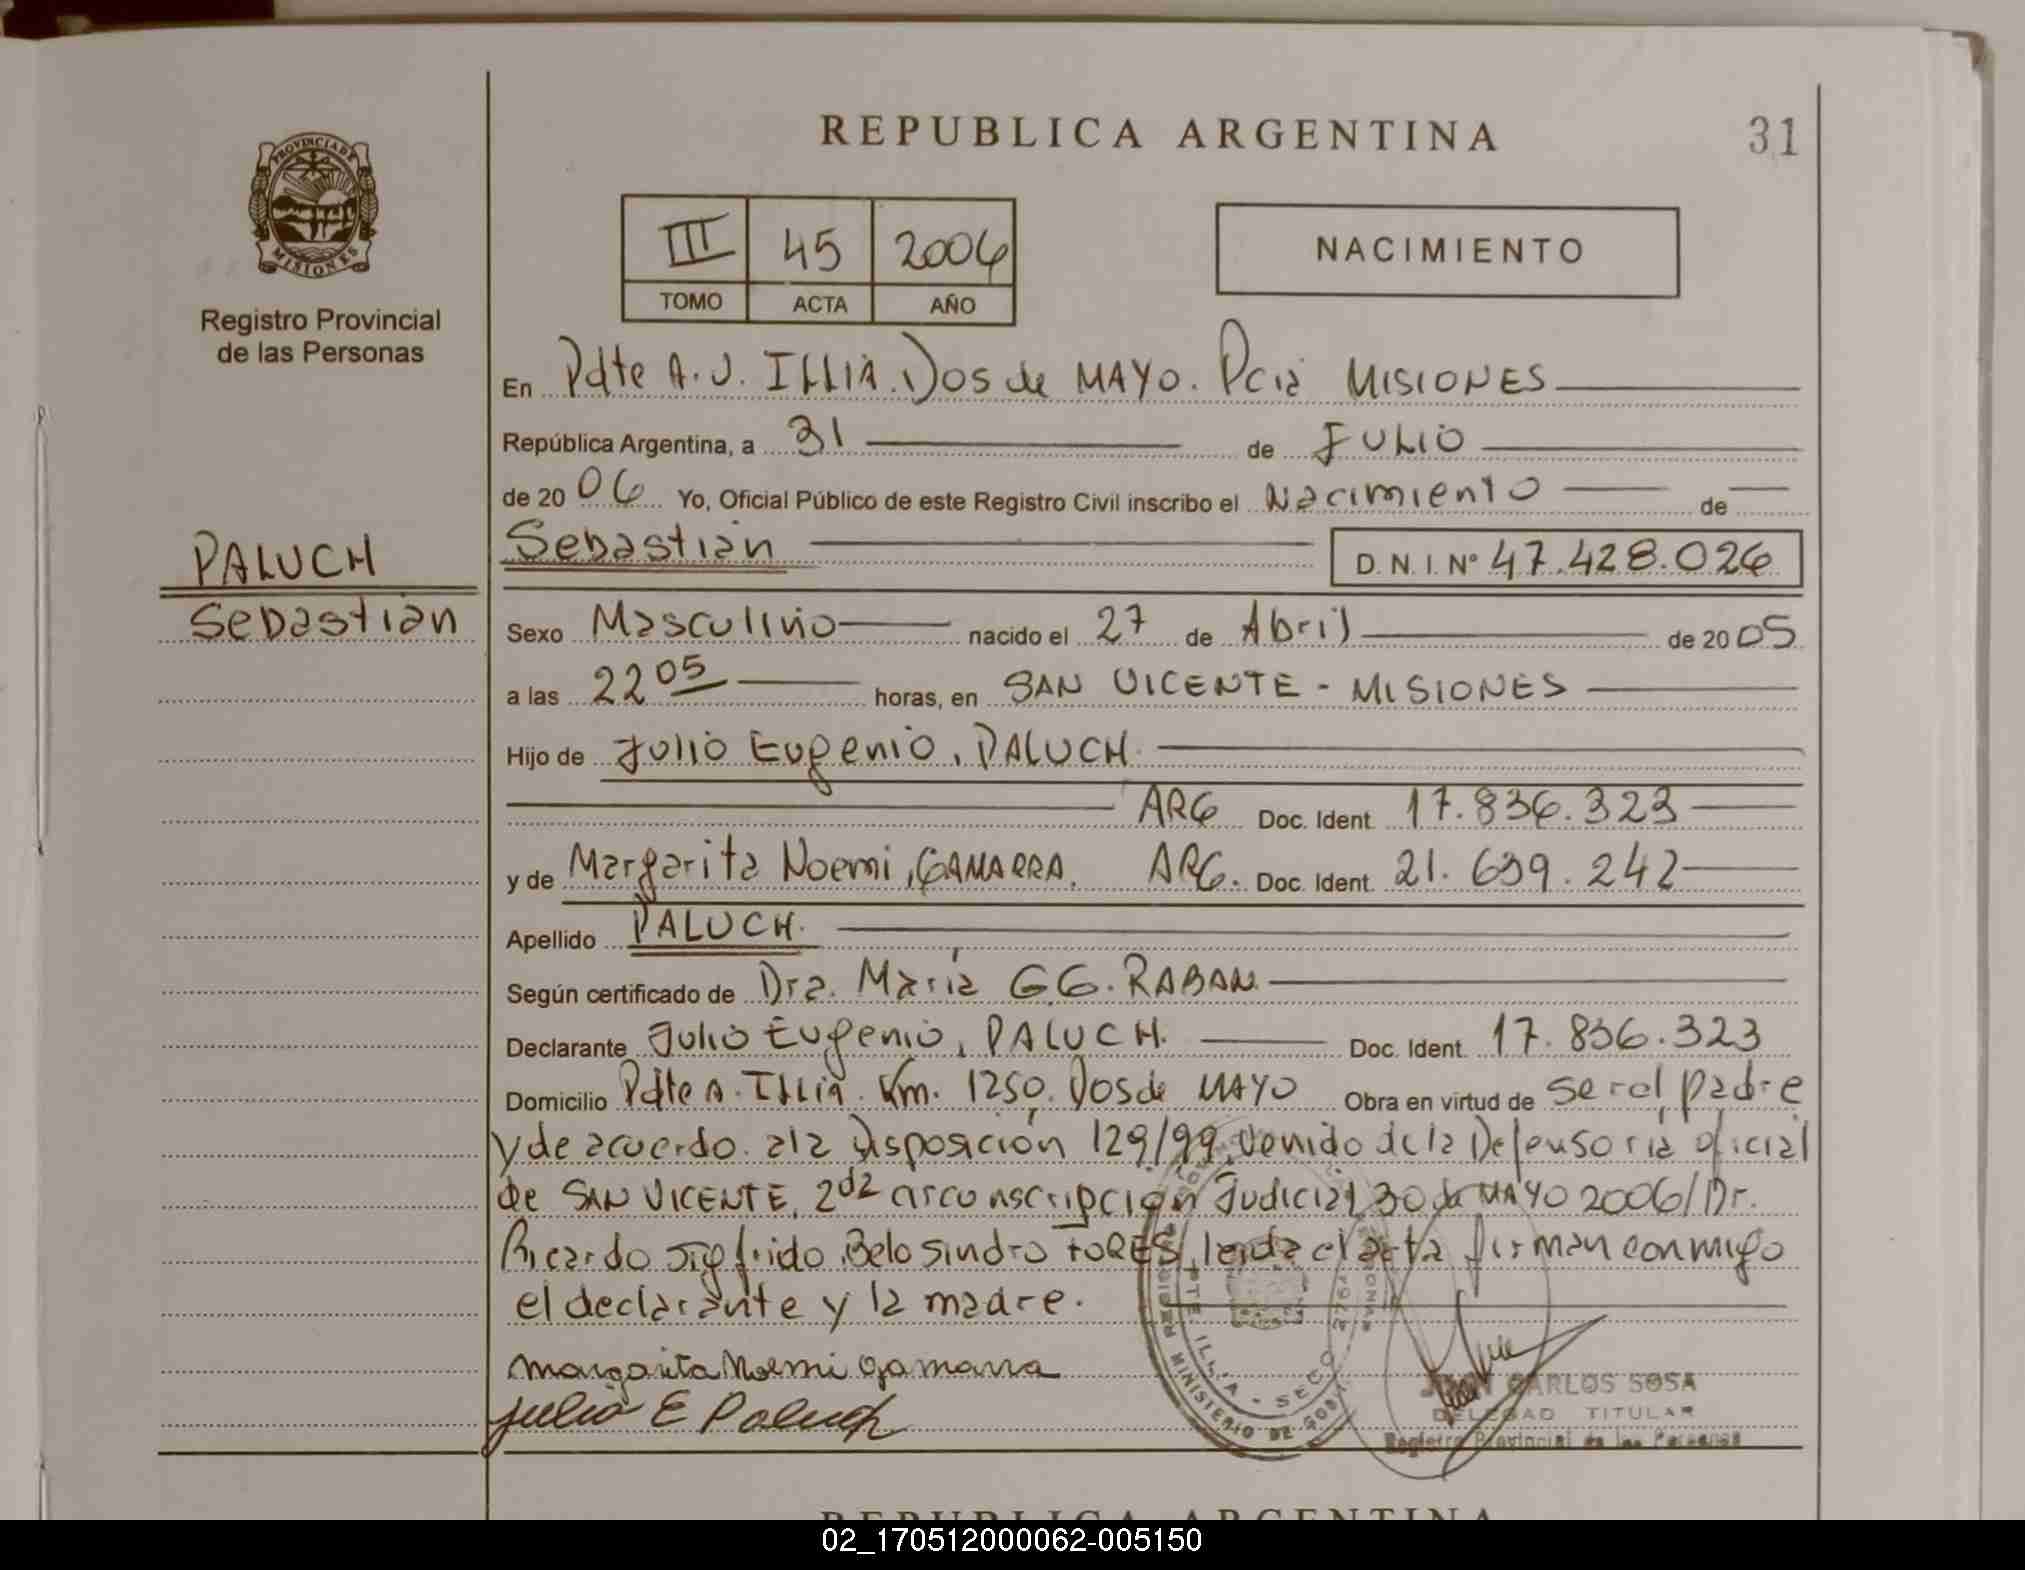 REPUBLICA ARGENTINA
31
PROVINCIA DE
MISIONES
Registro Provincial
de las Personas
III 45 2006
TOMO ACTA AÑO
NACIMIENTO
En Pdte A. U. ILLIA. Dos de MAYO. Pcia MISIONES
República Argentina, a 31 de JULIO
de 20 06 Yo, Oficial Público de este Registro Civil inscribo el Nacimiento de
PALUCH
Sebastián
Sebastián D. N. I. Nº 47.428.026
Sexo Masculino nacido el 27 de Abril de 20 05
a las 22 05 horas, en SAN VICENTE - MISIONES
Hijo de Julio Eugenio, PALUCH.
ARG Doc. Ident. 17.836.323
y de Margarita Noemi, GAMARRA. ARG. Doc. Ident. 21.639.242
Apellido PALUCH.
Según certificado de Dra. María G.G. RABAN.
Declarante Julio Eugenio, PALUCH. Doc. Ident. 17.836.323
Domicilio Pdte A. ILLIA. Km. 1250. Dos de MAYO Obra en virtud de ser el padre
y de acuerdo. a la Disposición 129/99. venido de la Defensoria oficial
de SAN VICENTE, 2da circunscripción Judicial 30 de MAYO 2006/Dr.
Ricardo Sigfrido, Belosindro TORES/ leida el acta firman conmigo
el declarante y la madre.
Margarita Noemi Gamarra
Julio E Paluch
PTE. ILLIA - SECC
MINISTERIO DE GOB
JUAN CARLOS SOSA
DELEGAD TITULAR
Registro Provincial de las Personas
REPUBLICA ARGENTINA
02_170512000062-005150